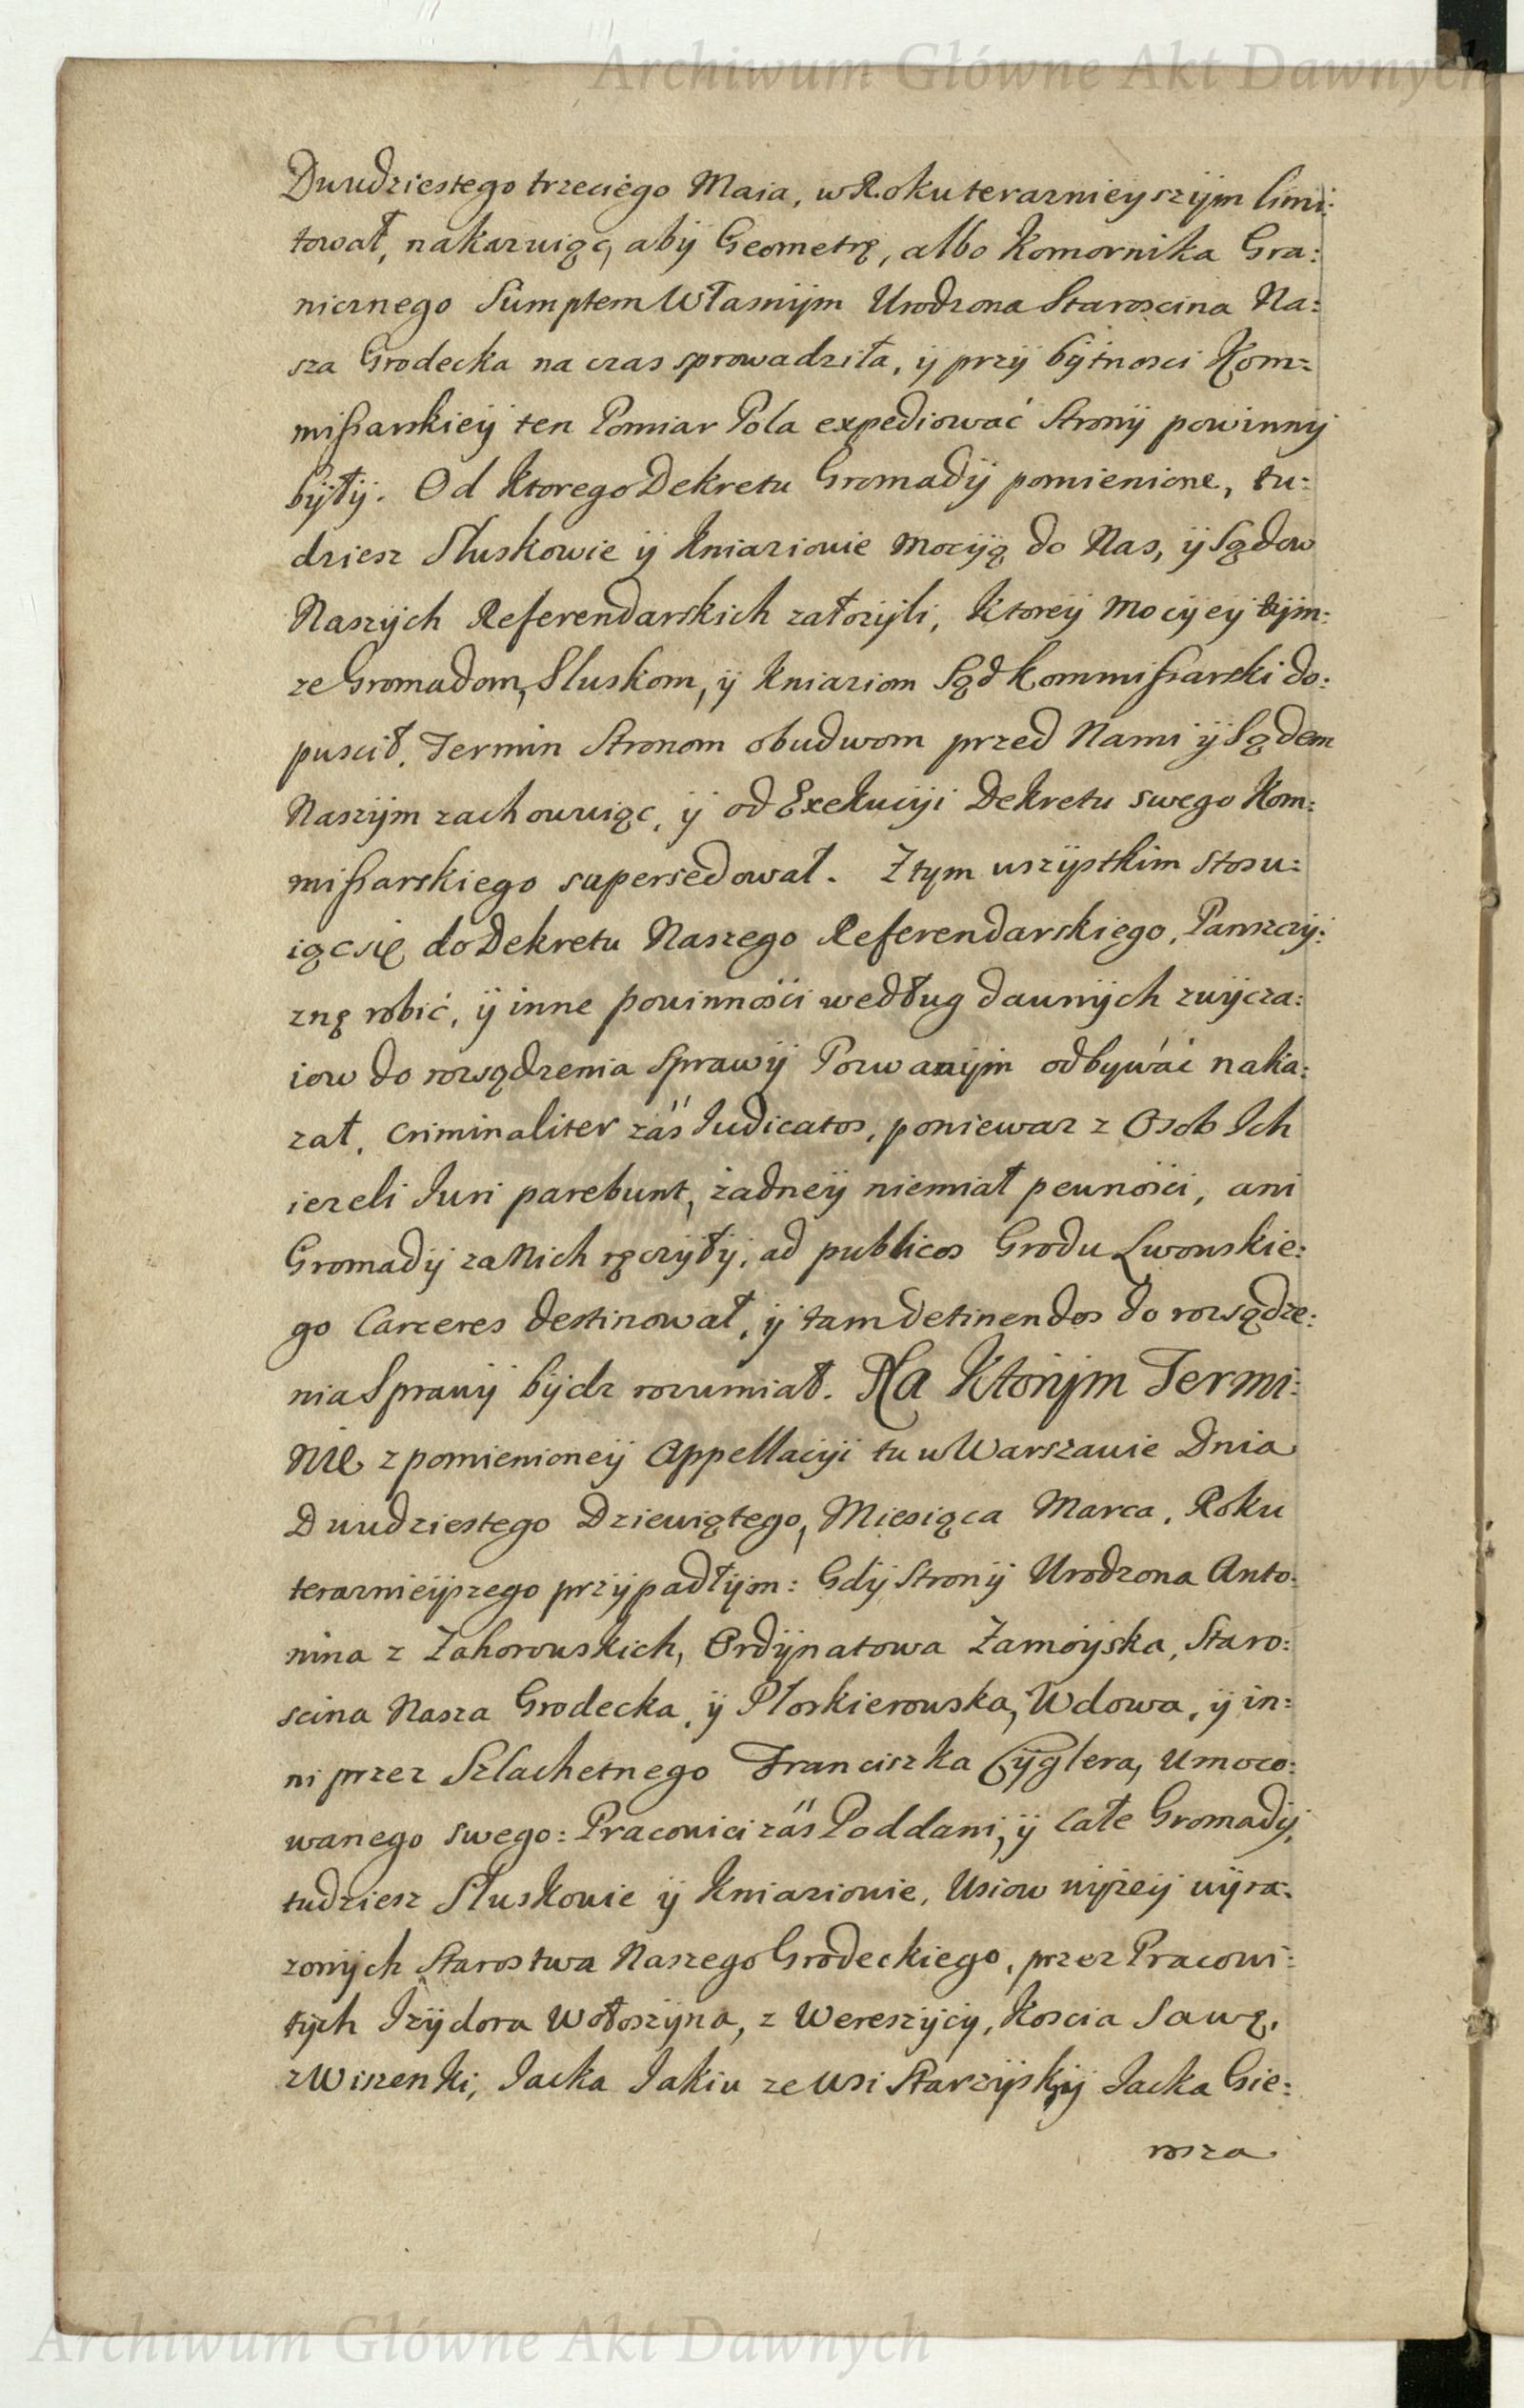 Archiwum Główne Akt Dawnych
Dwudziestego trzeciego Maia, w Roku terazniey szÿm limi:
tował, nakazuiąc, abÿ Geometrę, albo Komornika Gra:
nicznego Sumptem Własnÿm Urodzona Staroscina Na:
sza Grodecka na czas sprowadziła, ÿ przÿ bÿtnosci Kom:
missarskieÿ ten Pomiar Pola expediować Stronÿ powinnÿ
bÿłÿ. Od Ktorego Dekretu Gromadÿ pomienione, tu:
dziesz Sluskowie ÿ Kniaziowie Mocÿą do Nas, ÿ Sądow
Naszÿch Referendarskich załozÿli, Ktoreÿ Mocÿeÿ tÿm:
ze Gromadom, Sluskom, ÿ Kniaziom Sąd Kommissarski do:
puscił. Termin Stronom obudwom przed Nami ÿ Sądem
Naszÿm zachowuiąc, ÿ od Exekucÿi Dekretu swego Kom:
missarskiego supersedował. Z tym wszÿstkim stosu:
iąc się do Dekretu Naszego Referendarskiego, Panszczÿ:
znę robić, ÿ inne powinności według dawnÿch zwÿcza:
iow do rozsądzenia Sprawÿ Pozwanÿm odbywáć naka:
zał, Criminaliter záś Iudicatos, poniewaz z Osob Ich
iezeli Iuri parebunt, żadneÿ niemiał pewności, ani
Gromadÿ za Nich ręczÿłÿ, ad publicos Grodu Lwowskie:
go Carceres destinował, ÿ tam detinendos do rozsądze:
nia Sprawÿ bÿdz rozumiał. Na Ktorÿm Termi:
nie z pomienioneÿ Appellacÿi tu w Warszawie Dnia
Dwudziestego Dziewiątego, Miesiąca Marca, Roku
teraznieÿszego przÿpadłÿm: Gdÿ Stronÿ Urodzona Anto:
nina z Zahorowskich, Ordÿnatowa Zamoÿska, Staro:
scina Nasza Grodecka, ÿ Płoskierowska, Wdowa, ÿ in:
ni przez Szlachetnego Franciszka Cÿglera, Umoco:
wanego swego: Pracowici záś Poddani, ÿ całe Gromadÿ,
tudziesz Słuskowie ÿ Kniaziowie, Wsiow niÿzeÿ wÿra:
zonÿch Starostwa Naszego Grodeckiego, przez Pracowi:
tÿch Izÿdora Wołoszÿna, z Wereszÿcÿ, Koscia Sawę,
z Wiszenki, Iacka Iakiu ze Wsi Starzÿskÿ Iacka Gie:
rosza
Archiwum Główne Akt Dawnych